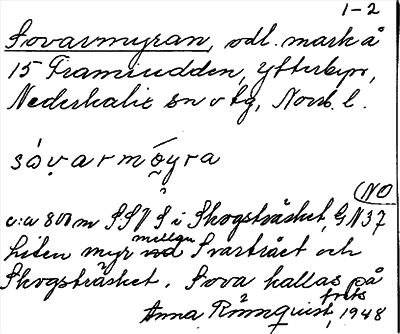 1-2
Sovarmyran, odl. mark å
15 Framrudden, Ytterbyn,
Nederkalix sn o tg, Norrb. l.
sóvarmòyra
NO
c:a 800 m SSV S i Skogsträsket, G N37
Liten myr mellan Svartrået och
Skogsträsket. Sova kallas på
Anna Rönnquist, 1948